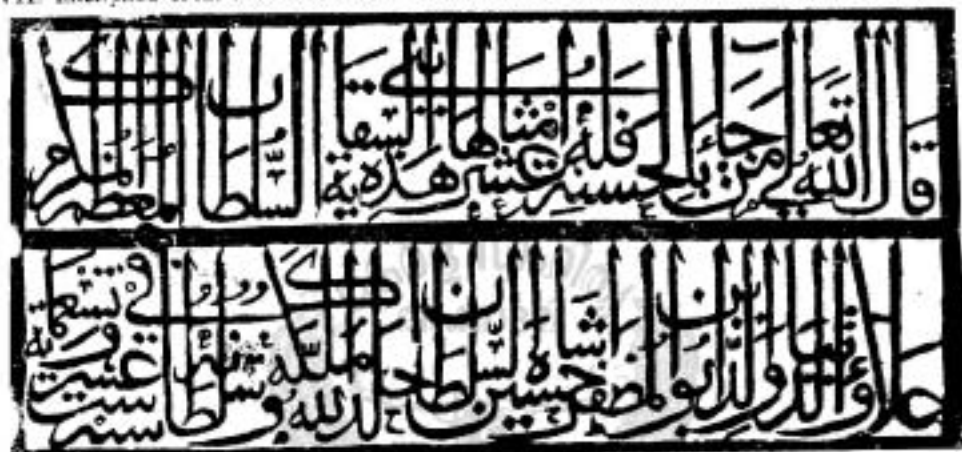 قال الله تعالى من جاء بالحسنة فله عشر امثالها بنى هذه السقاية السلطان المعظم المكرم
علاء الدنيا والدين ابو المظفر حسين شاه السلطان خلد الله ملكه وسلطانه في سنة ست عشرة وتسعماية